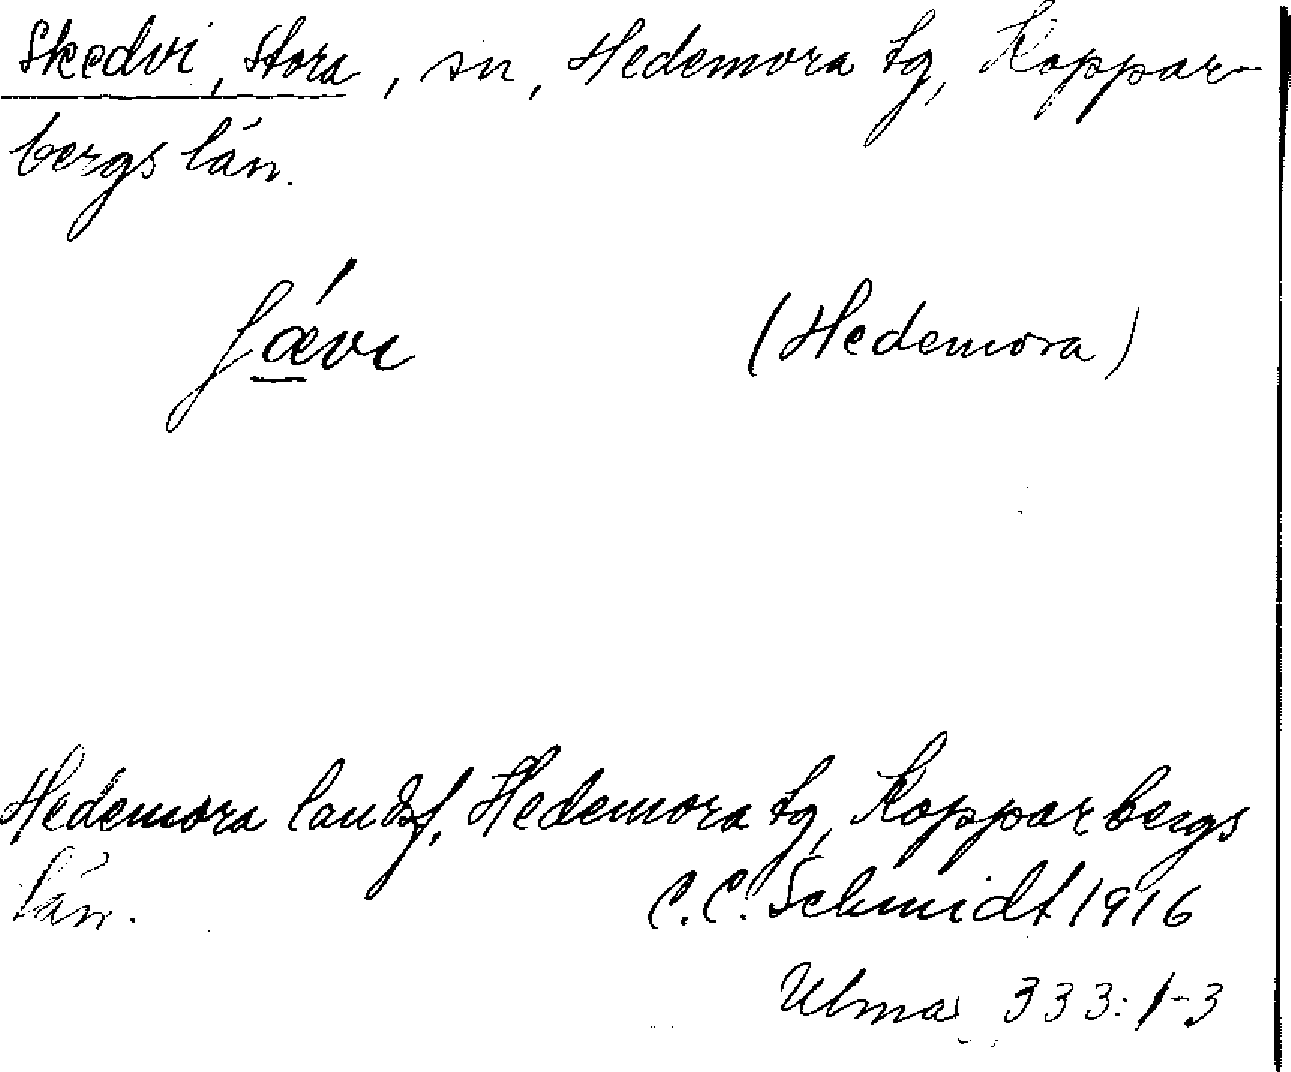 Skedvi, Stora, sn, Hedemora tg, Koppar-
bergs län.
(Hedemora)
Hedemora landsf, Hedemora tg, Kopparbergs
län.
C.C. Schmidt 1916
Ulmas 333:1-3